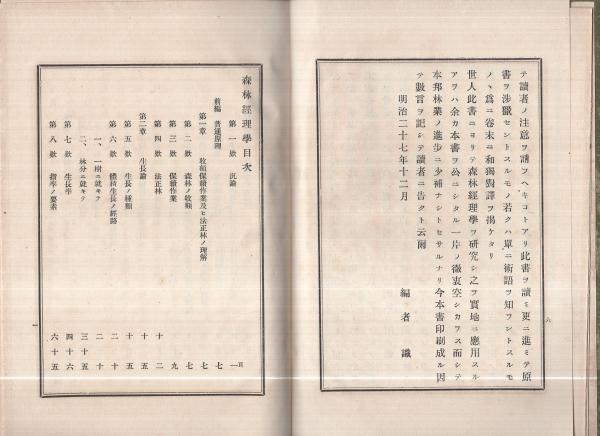 テ讀者ノ注意ヲ請フヘキコトアリ此書ヲ讀ミ更ニ進ミテ原
書ヲ涉獵セントスルモノ若クハ單ニ術語ヲ知ラントスルモ
ノヽ爲ニ卷末ニ和獨對譯ヲ揭ケタリ
世人此書ニヨリテ森林經理學ヲ硏究シ之ヲ實地ニ應用スル
アラハ余カ本書ヲ公ニシタル一片ノ微衷空シカラス而シテ
本邦林業ノ進步ニ少補ナシトセサルナリ今本書印刷成ル因
テ數言ヲ記シテ讀者ニ吿クト云爾
明治二十七年十二月
編者識
六
森林經理學目次
前編 普通原理
第一款 汎論 一頁
第一章 收額保續作業及ヒ法正林ノ理解 七
第二款 森林ノ收額 七
第三款 保續作業 九
第四款 法正林 十二
第二章 生長論 十五
第五款 生長ノ種類 十五
第六款 積生長ノ經路 二十
一、一樹ニ就キテ 二十
二、林分ニ就キテ 三十五
第七款 生長率 四十六
第八款 指率ノ要素 六十五
一